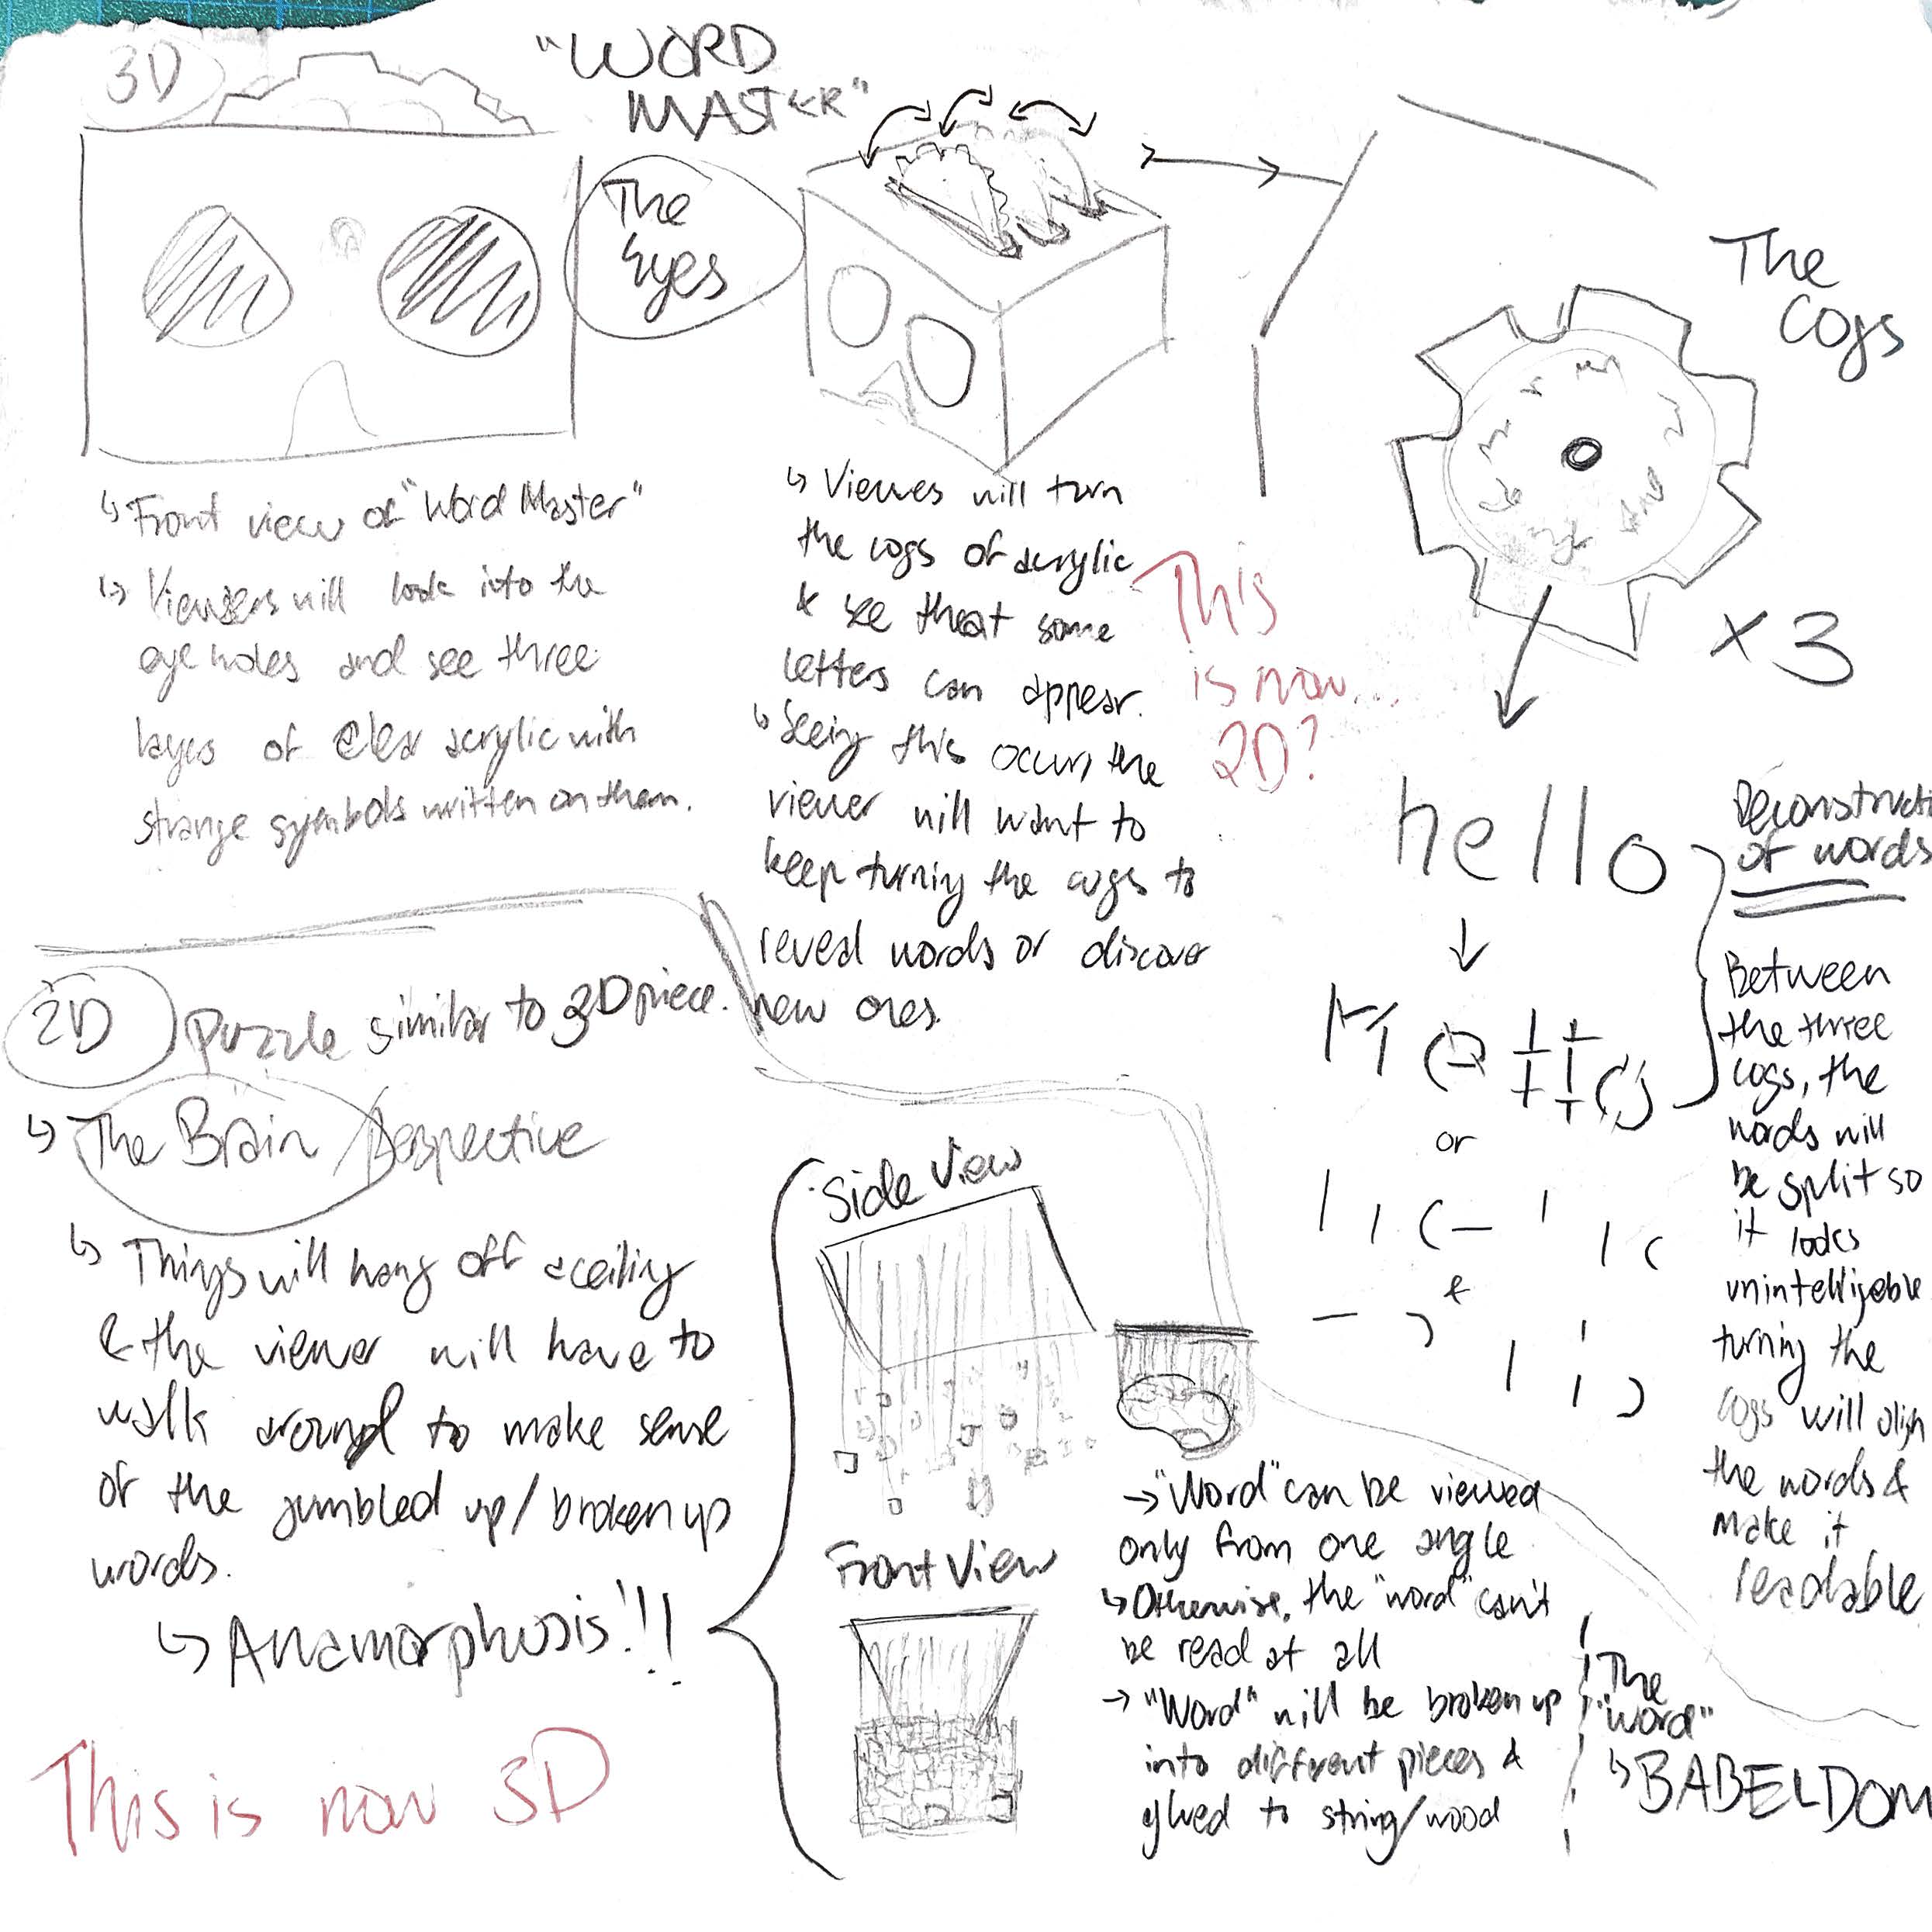 3D
"WORD
MASTER"
The
Eyes
↳ Front view of "Word Master"
↳ Viewsers will look into the
eye holes and see three
layes of clear acrylic with
strange symbols written on them.
↳ Viewes will turn
the cogs of acrylic
& see that some
letters can appear.
↳ Seeing this occur, the
viewer will want to
keep turning the cogs to
reveal words or discover
new ones.
This
is now...
2D?
The
Cogs
x3
hello
or
&
Deconstructi
of words
Between
the three
cogs, the
words will
be split so
it looks
unintelligeble
turning the
cogs will align
the words &
make it
readable
2D
Puzzle similar to 3D piece.
↳ The Brain / Perspective
↳ Things will hang off a ceiling
& the viewer will have to
walk around to make sense
of the jumbled up/broken up
words.
↳ Anamorphosis!!!
This is now 3D
Side View
Front View
→ "Word" can be viewed
only from one angle
↳ Otherwise, the "word" can't
be read at all
→ "Word" will be broken up
into different pieces &
glued to string/wood
The
"word"
↳ BABELDOM